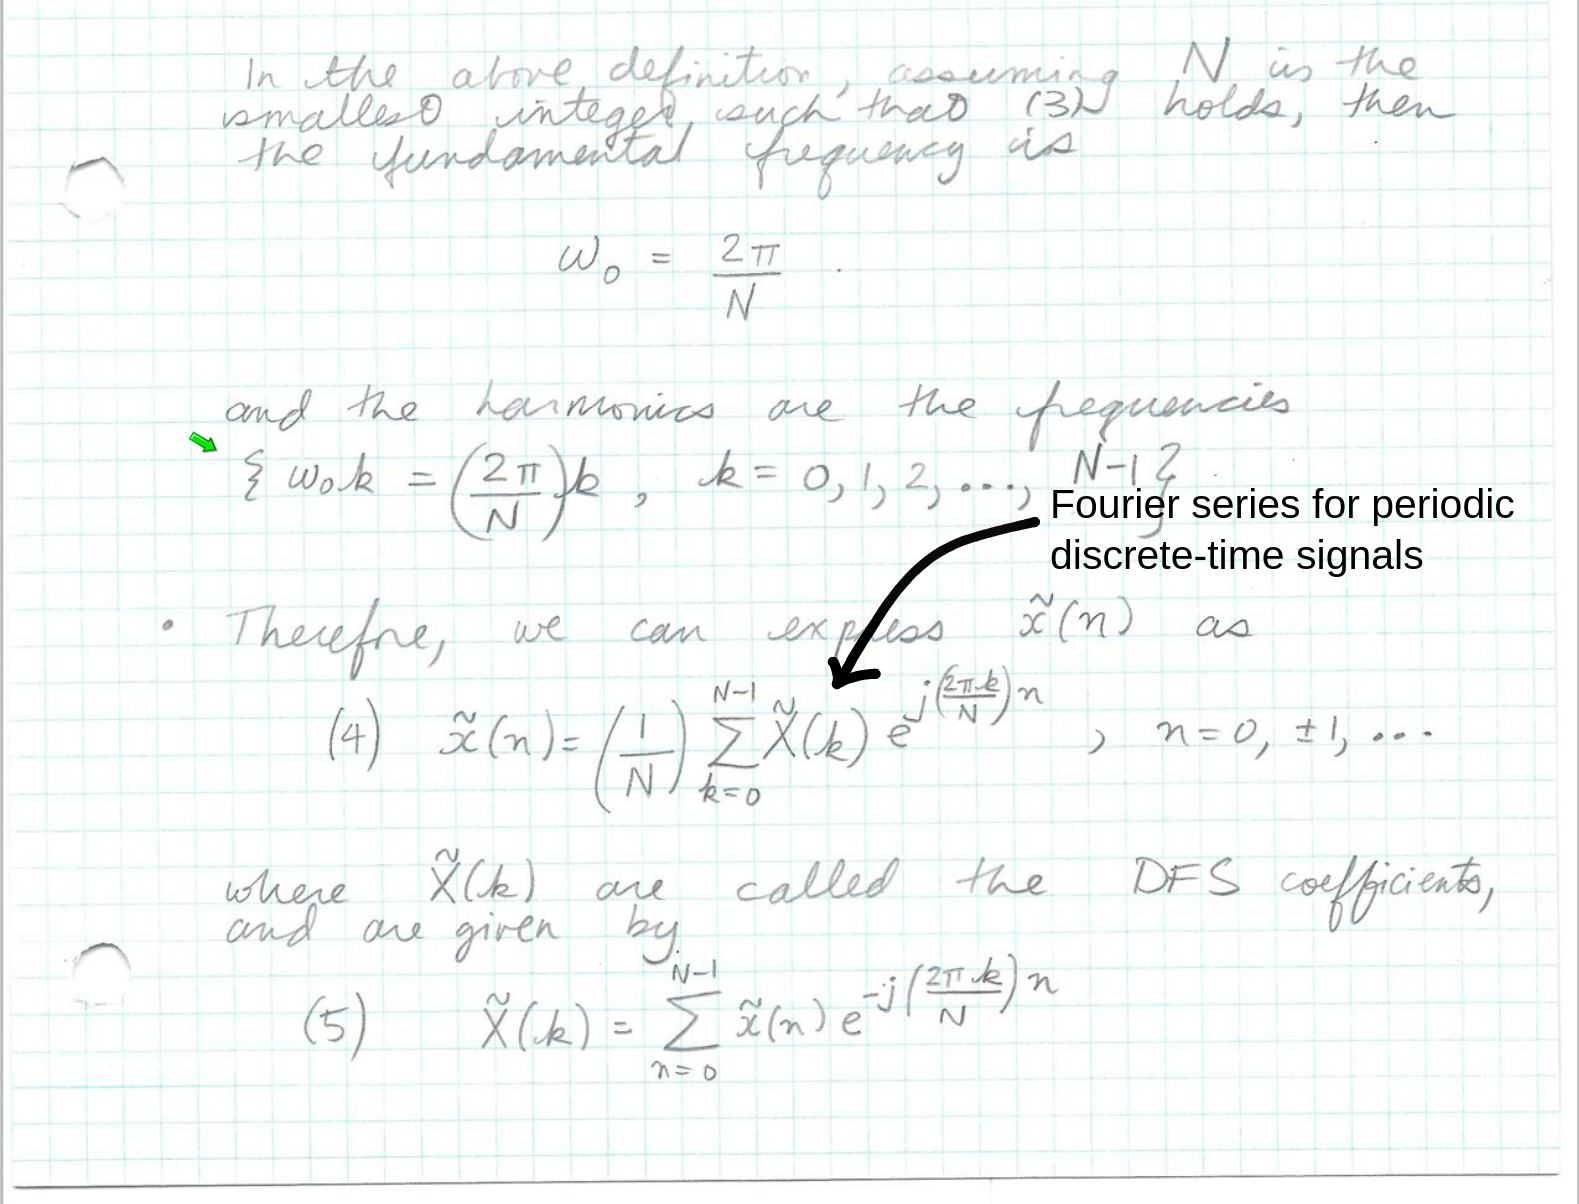 In the above definition, assuming N is the
smallest integer such that (3) holds, then
the fundamental frequency is
ω₀ = 2π/N .
and the harmonics are the frequencies
{ ω₀k = (2π/N)k , k = 0, 1, 2, ..., N-1 }
Fourier series for periodic
discrete-time signals
• Therefore, we can express x̃(n) as
(4) x̃(n) = (1/N) ∑_{k=0}^{N-1} X̃(k) e^{j(2πk/N)n} , n = 0, ±1, ...
where X̃(k) are called the DFS coefficients,
and are given by
(5) X̃(k) = ∑_{n=0}^{N-1} x̃(n) e^{-j(2πk/N)n}